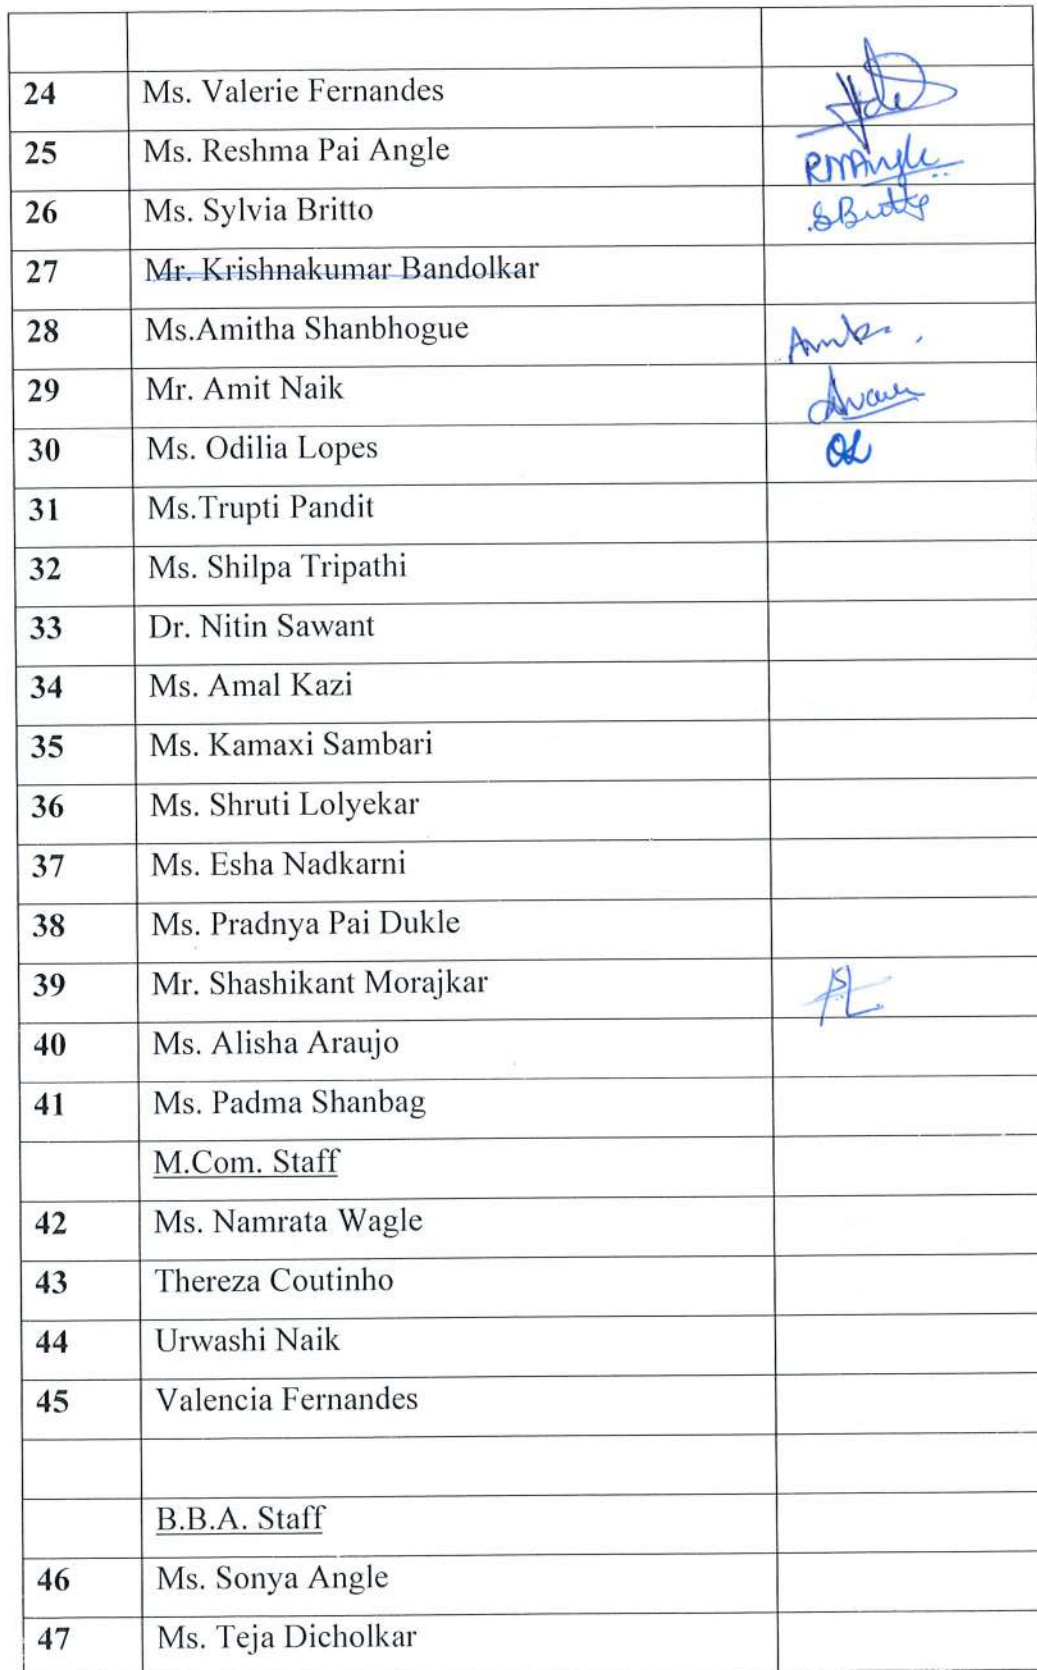 24 Ms. Valerie Fernandes
25 Ms. Reshma Pai Angle RMAngle
26 Ms. Sylvia Britto SBritto
27 Mr. Krishnakumar Bandolkar
28 Ms.Amitha Shanbhogue
29 Mr. Amit Naik
30 Ms. Odilia Lopes OL
31 Ms.Trupti Pandit
32 Ms. Shilpa Tripathi
33 Dr. Nitin Sawant
34 Ms. Amal Kazi
35 Ms. Kamaxi Sambari
36 Ms. Shruti Lolyekar
37 Ms. Esha Nadkarni
38 Ms. Pradnya Pai Dukle
39 Mr. Shashikant Morajkar
40 Ms. Alisha Araujo
41 Ms. Padma Shanbag
M.Com. Staff
42 Ms. Namrata Wagle
43 Thereza Coutinho
44 Urwashi Naik
45 Valencia Fernandes
B.B.A. Staff
46 Ms. Sonya Angle
47 Ms. Teja Dicholkar